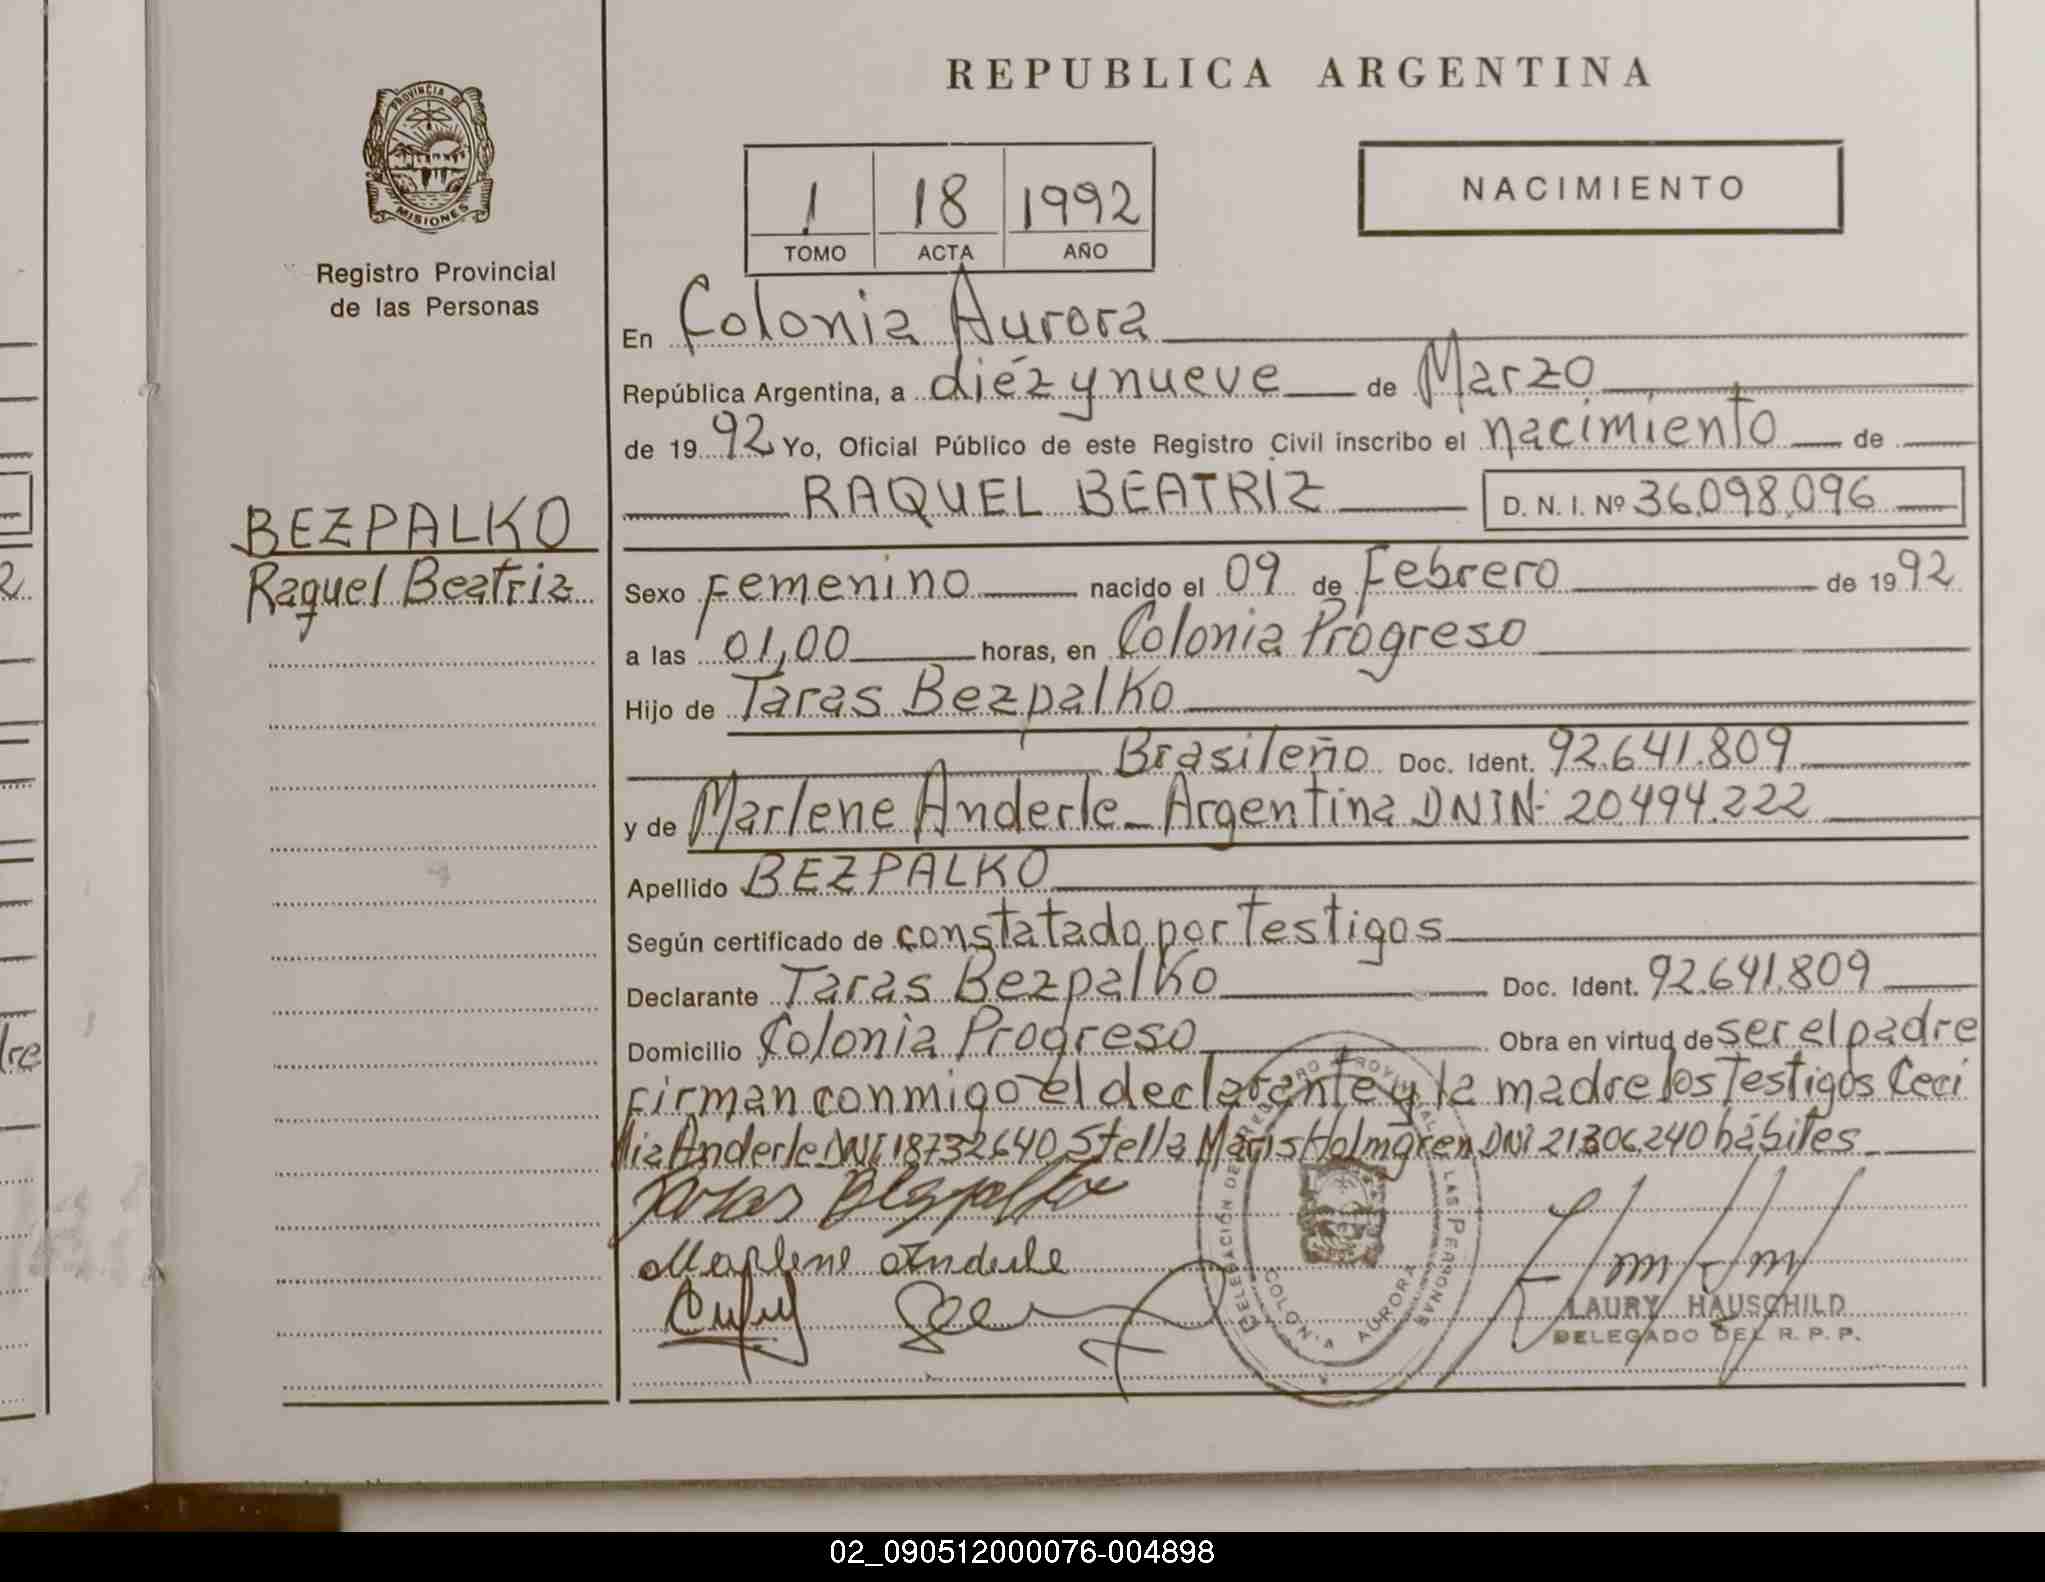 PROVINCIA DE
MISIONES
Registro Provincial
de las Personas
BEZPALKO
Raquel Beatriz
REPUBLICA ARGENTINA
1 18 1992
TOMO ACTA AÑO
NACIMIENTO
En Colonia Aurora
República Argentina, a diéz y nueve de Marzo
de 1992 Yo, Oficial Público de este Registro Civil inscribo el nacimiento de
RAQUEL BEATRIZ D. N. I. Nº 36.098.096
Sexo Femenino nacido el 09 de Febrero de 1992
a las 01,00 horas, en Colonia Progreso
Hijo de Taras Bezpalko
Brasileño Doc. Ident. 92.641.809
y de Marlene Anderle - Argentina DNI N- 20.494.222
Apellido BEZPALKO
Según certificado de constatado por Testigos
Declarante Taras Bezpalko Doc. Ident. 92.641.809
Domicilio Colonia Progreso Obra en virtud de ser el padre
firman conmigo el declarante y la madre los Testigos Ceci
lia Anderle DNI 18732640 Stella Maris Holmgren DNI 21306.240 hábiles
Taras Bezpalko
Marlene Anderle
DELEGACIÓN DEL REGISTRO PROVINCIAL DE LAS PERSONAS
COLONIA AURORA
LAURY HAUSCHILD
DELEGADO DEL R. P. P.
02_090512000076-004898